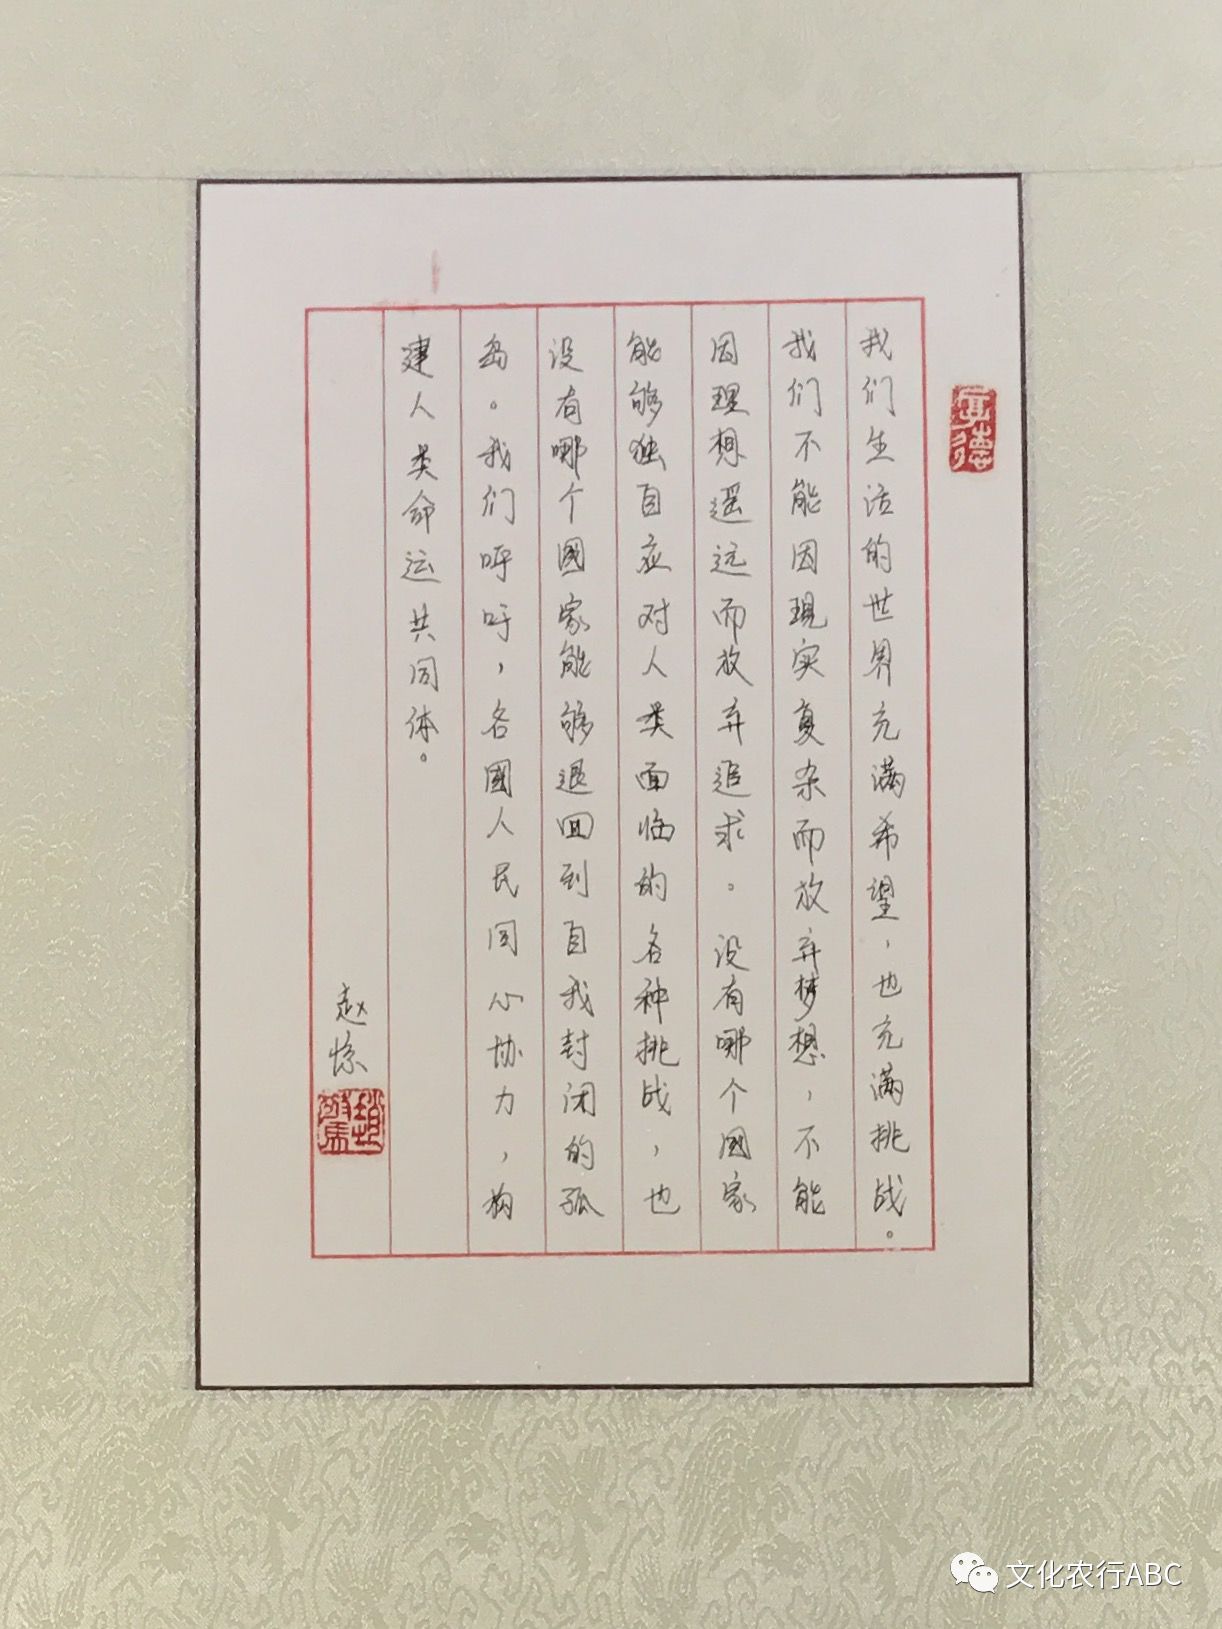 我们生活的世界充满希望，也充满挑战。
我们不能因现实复杂而放弃梦想，不能
因理想遥远而放弃追求。没有哪个国家
能够独自应对人类面临的各种挑战，也
没有哪个國家能够退回到自我封闭的孤
岛。我们呼吁，各國人民同心协力，构
建人类命运共同体。
赵惊
趙驚
文化农行ABC